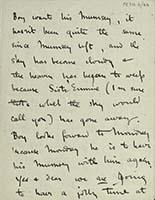 Boy wants his Mumsey, it
hasn't been quite the same
since Mumsey left, and the
sky has become cloudy &
the heaven has begun to weep
because Sister Emmie (I'm sure
that's what the sky would
call you) has gone away.
Boy looks forward to Monday
'cause Monday he is to have
his Mumsey with him again
Yes & dear we are going
to have a jolly time at